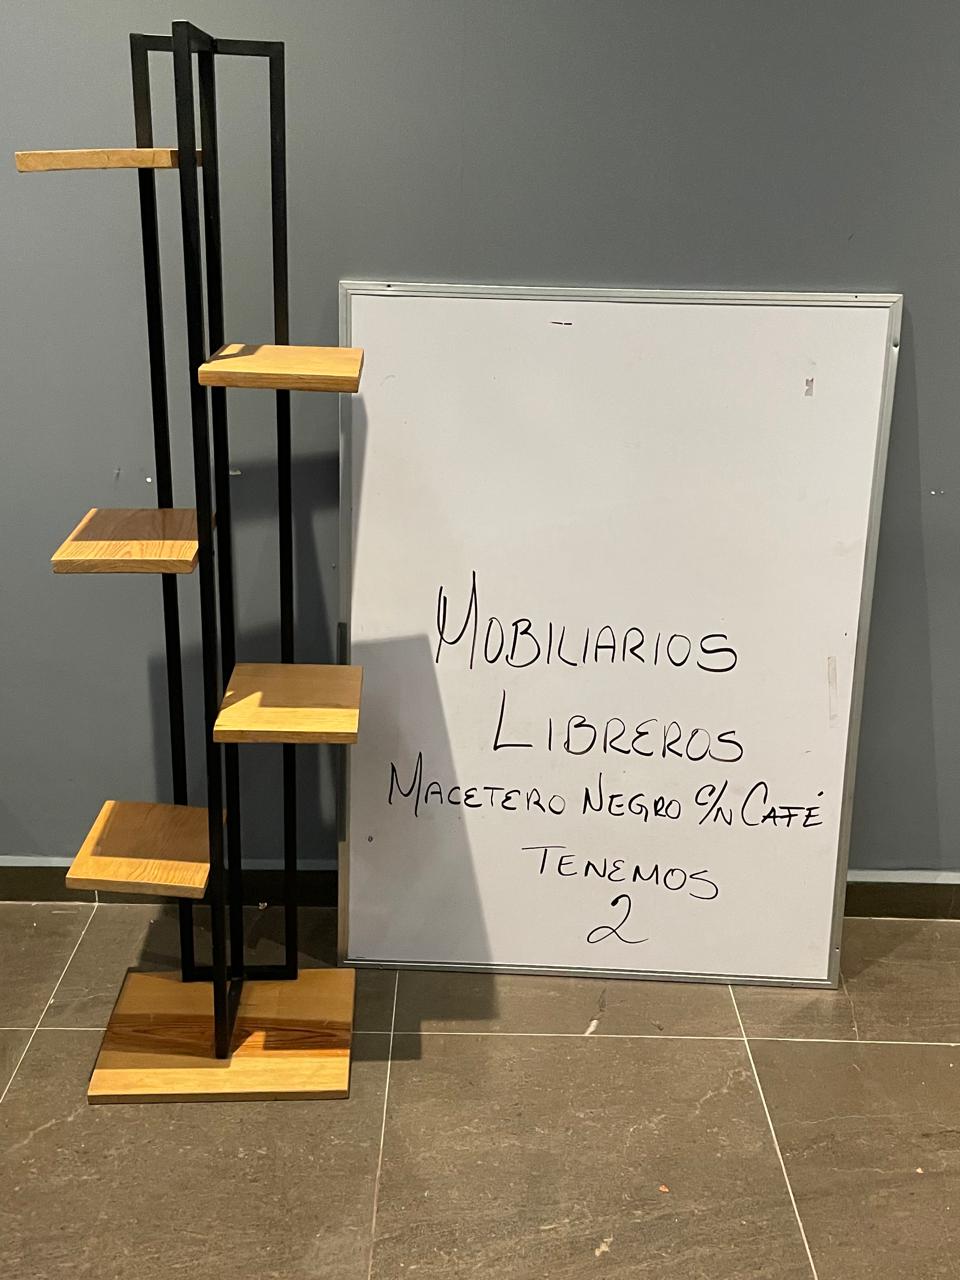 MOBILIARIOS
LIBREROS
MACETERO NEGRO C/N CAFÉ
TENEMOS
2